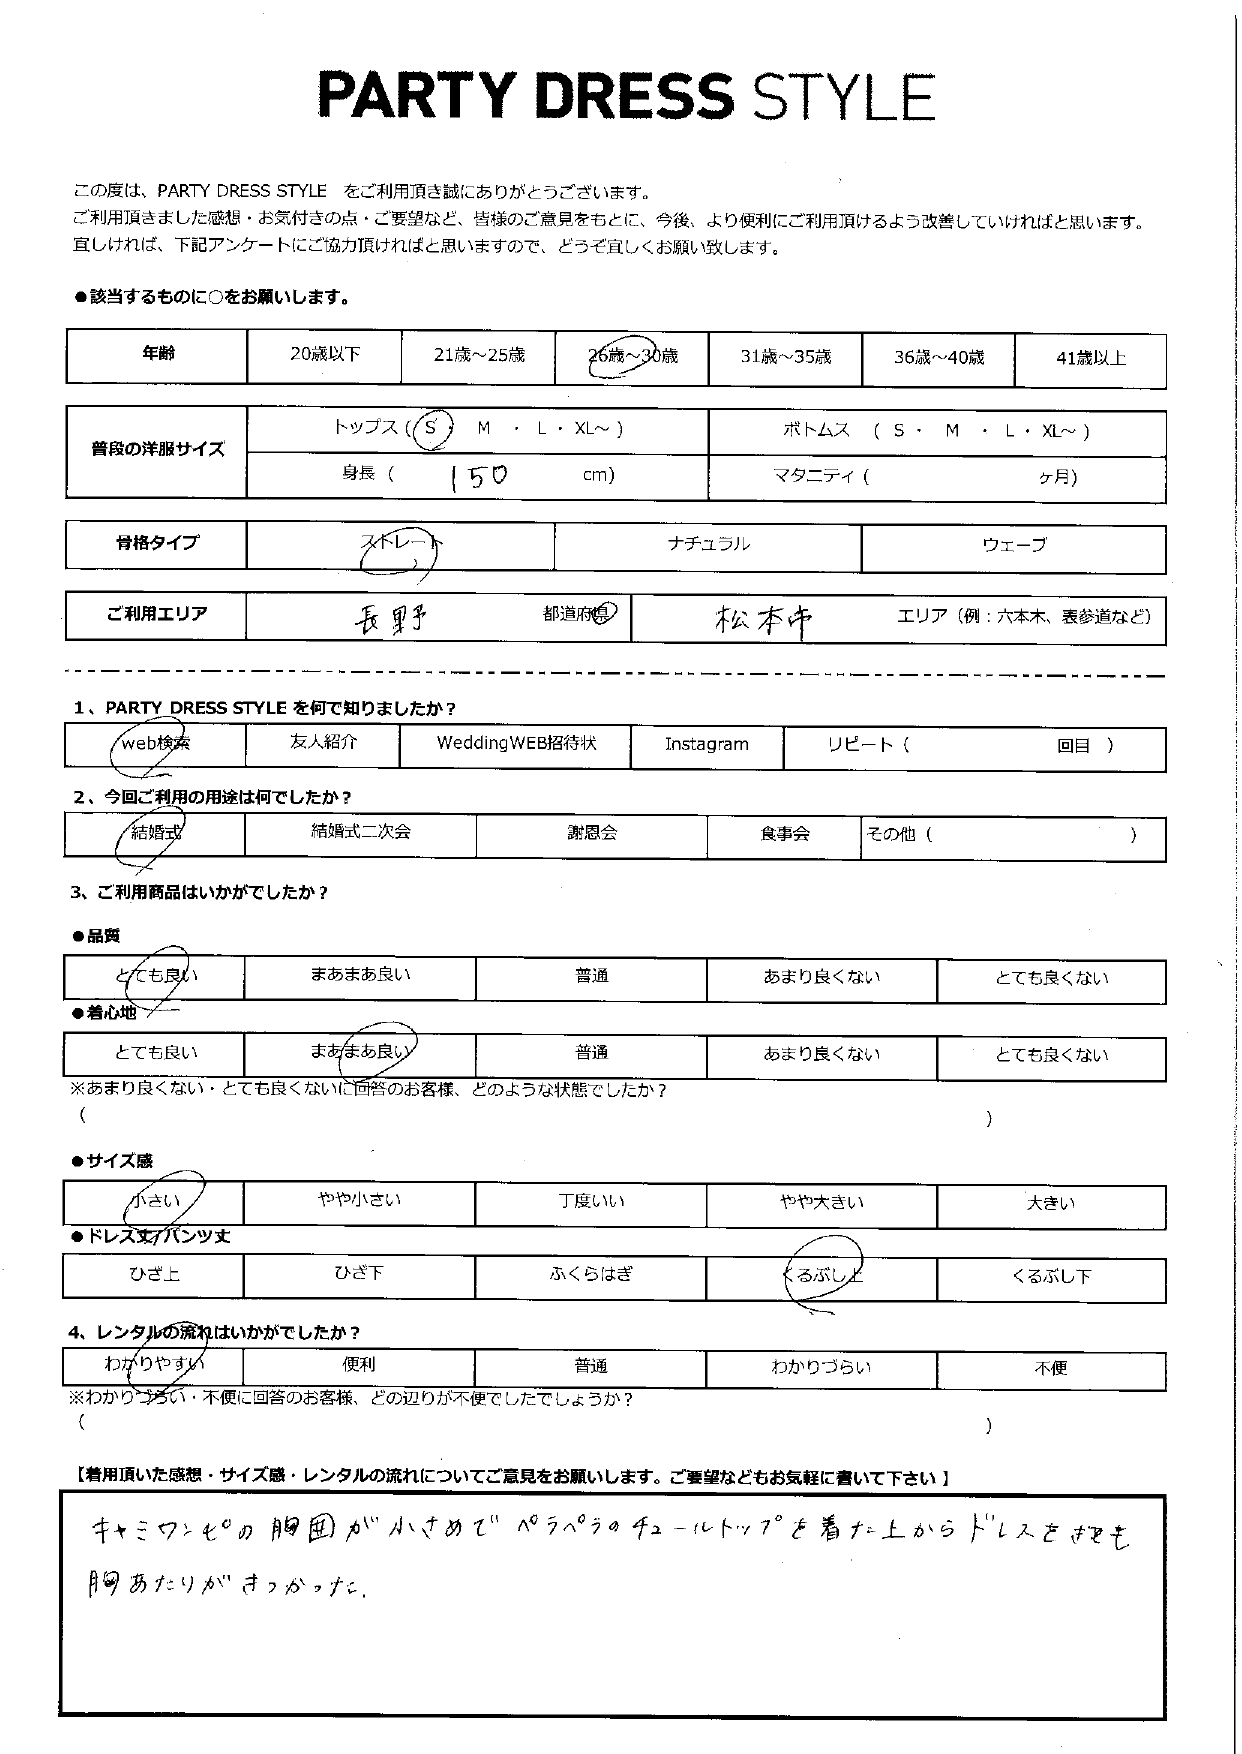 PARTY DRESS STYLE
この度は、PARTY DRESS STYLE をご利用頂き誠にありがとうございます。
ご利用頂きました感想・お気付きの点・ご要望など、皆様のご意見をもとに、今後、より便利にご利用頂けるよう改善していければと思います。
宜しければ、下記アンケートにご協力頂ければと思いますので、どうぞ宜しくお願い致します。
●該当するものに○をお願いします。
年齢 20歳以下 21歳～25歳 26歳～30歳 31歳～35歳 36歳～40歳 41歳以上
普段の洋服サイズ
トップス ( S ・ M ・ L ・ XL～ ) ボトムス ( S ・ M ・ L ・ XL～ )
身長 ( 150 cm) マタニティ ( ヶ月)
骨格タイプ ストレート ナチュラル ウェーブ
ご利用エリア 長野 都道府県 松本市 エリア（例：六本木、表参道など）
1、PARTY DRESS STYLE を何で知りましたか？
web検索 友人紹介 WeddingWEB招待状 Instagram リピート ( 回目 )
2、今回ご利用の用途は何でしたか？
結婚式 結婚式二次会 謝恩会 食事会 その他 ( )
3、ご利用商品はいかがでしたか？
●品質
とても良い まあまあ良い 普通 あまり良くない とても良くない
●着心地
とても良い まあまあ良い 普通 あまり良くない とても良くない
※あまり良くない・とても良くないに回答のお客様、どのような状態でしたか？
( )
●サイズ感
小さい やや小さい 丁度いい やや大きい 大きい
●ドレス丈/パンツ丈
ひざ上 ひざ下 ふくらはぎ くるぶし上 くるぶし下
4、レンタルの流れはいかがでしたか？
わかりやすい 便利 普通 わかりづらい 不便
※わかりづらい・不便に回答のお客様、どの辺りが不便でしたでしょうか？
( )
【着用頂いた感想・サイズ感・レンタルの流れについてご意見をお願いします。ご要望などもお気軽に書いて下さい】
キャミワンピの胸囲が小さめで ペラペラのチュールトップを着た上からドレスをきても
胸あたりがきつかった.